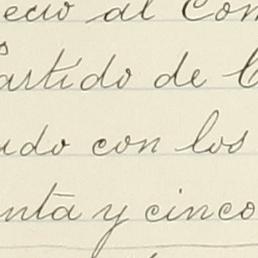 ecio al Com
artido de C
udo con los
nta y cinco